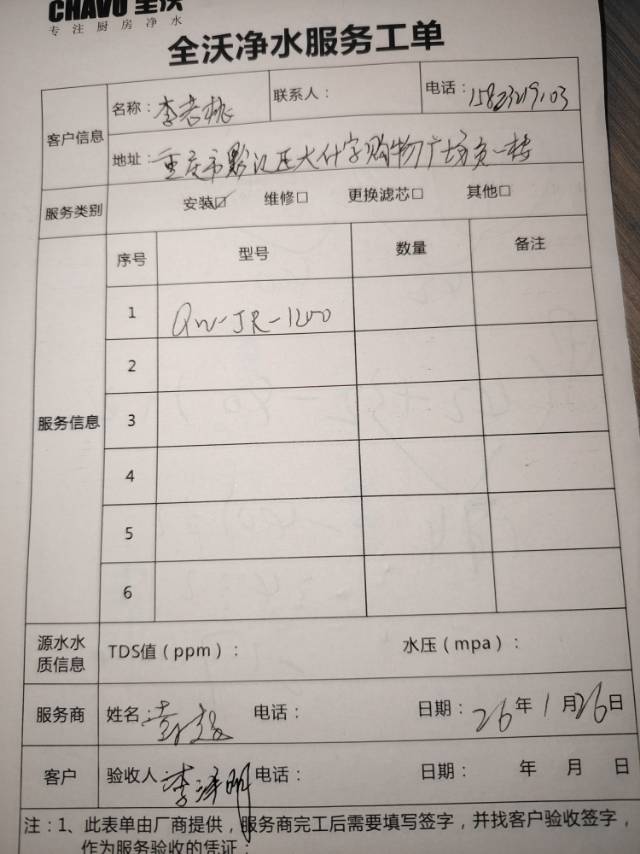 CHAVO 全沃
专注厨房净水
全沃净水服务工单
客户信息
名称：李 桃
联系人：
电话：
地址：重庆市黔江区大什字购物广场负一楼
服务类别
安装☑ 维修□ 更换滤芯□ 其他□
服务信息
序号 型号 数量 备注
1 QW-JR-1200
2
3
4
5
6
源水水质信息
TDS值（ppm）： 水压（mpa）：
服务商
姓名： 电话： 日期：26年1月26日
客户
验收人 李泽明 电话： 日期： 年 月 日
注：1、此表单由厂商提供，服务商完工后需要填写签字，并找客户验收签字，
作为服务验收的凭证；